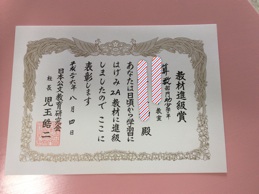 教材進級賞
算数
教室
殿
あなたは日頃から学習に
はげみ2A教材に進級
しましたので ここに
表彰します
平成二十六年 八月 四日
日本公文教育研究会
社長 児玉皓二